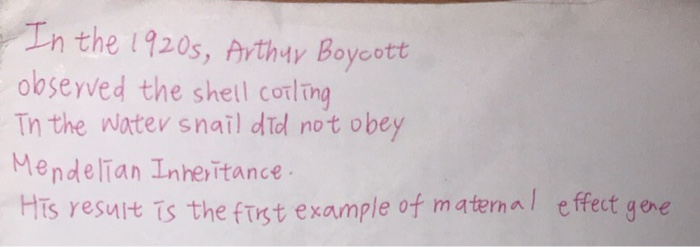 In the 1920s, Arthur Boycott
observed the shell coiling
in the water snail did not obey
Mendelian Inheritance.
His result is the first example of maternal effect gene